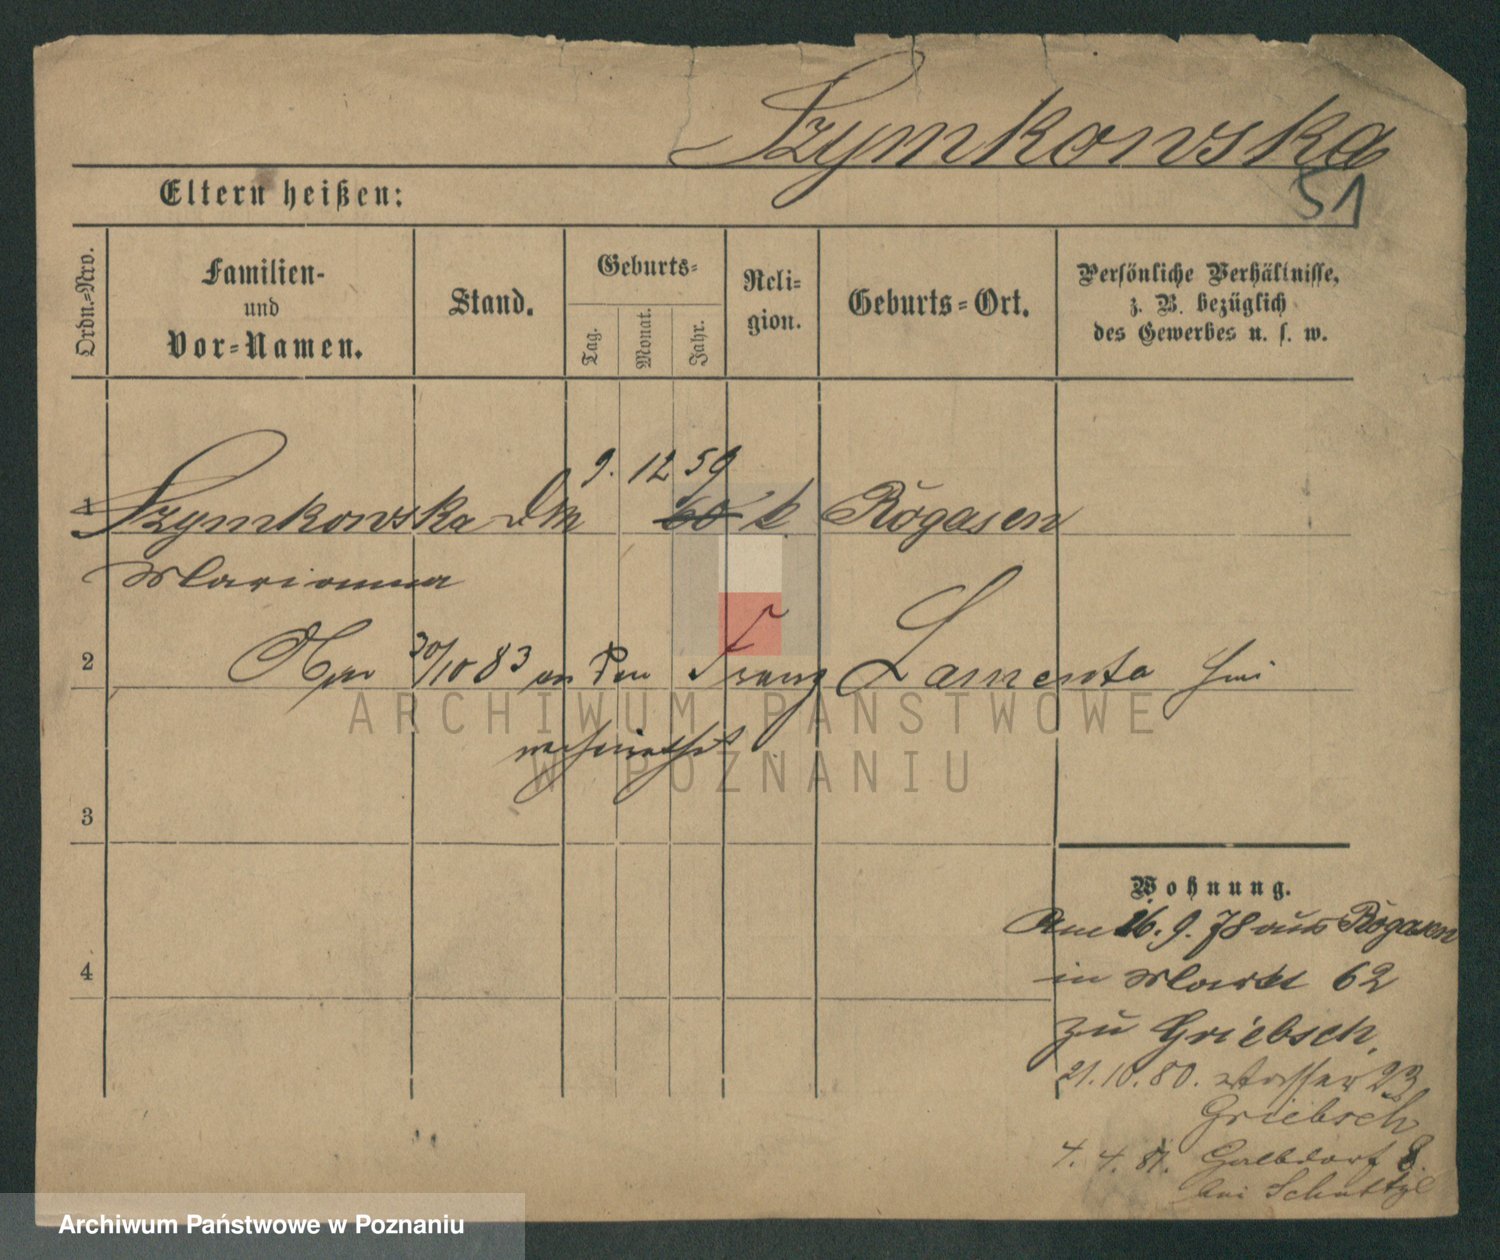 Szymkowska
51
Eltern heißen:
Ordn.=Nro.
Familien-
und
Vor=Namen.
Stand.
Geburts=
Tag.
Monat.
Jahr.
Reli=
gion.
Geburts=Ort.
Persönliche Verhältnisse,
z. B. bezüglich
des Gewerbes u. s. w.
9. 12 59
1 Szymkowska 60 k Rogasen
Marianna
2
30/10 83 an den Franz Lamenta
verheirathet
ARCHIWUM PAŃSTWOWE
W POZNANIU
3
Wohnung.
Am 26. 9. 78 aus Rogasen
4
in Markt 62
zu Griebsch.
21.10.80. Wasser 23
Griebsch
4. 4. 81. 8.
bei
Archiwum Państwowe w Poznaniu